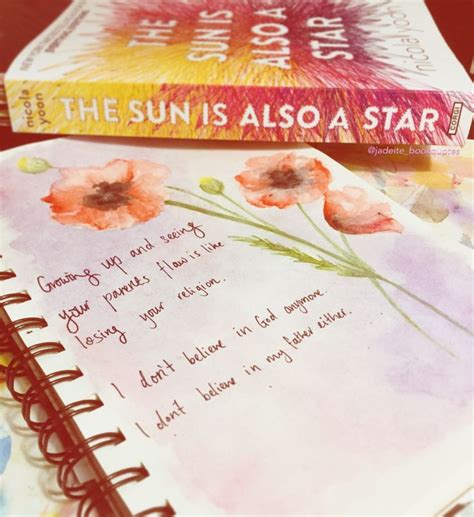 THE
SUN IS
ALSO A
STAR
nicola yoon
nicola
yoon
THE SUN IS ALSO A STAR
CORGI
@jadeite_bookquotes
Growing up and seeing
your parents flaw is like
losing your religion.
I don't believe in God anymore.
I don't believe in my father either.